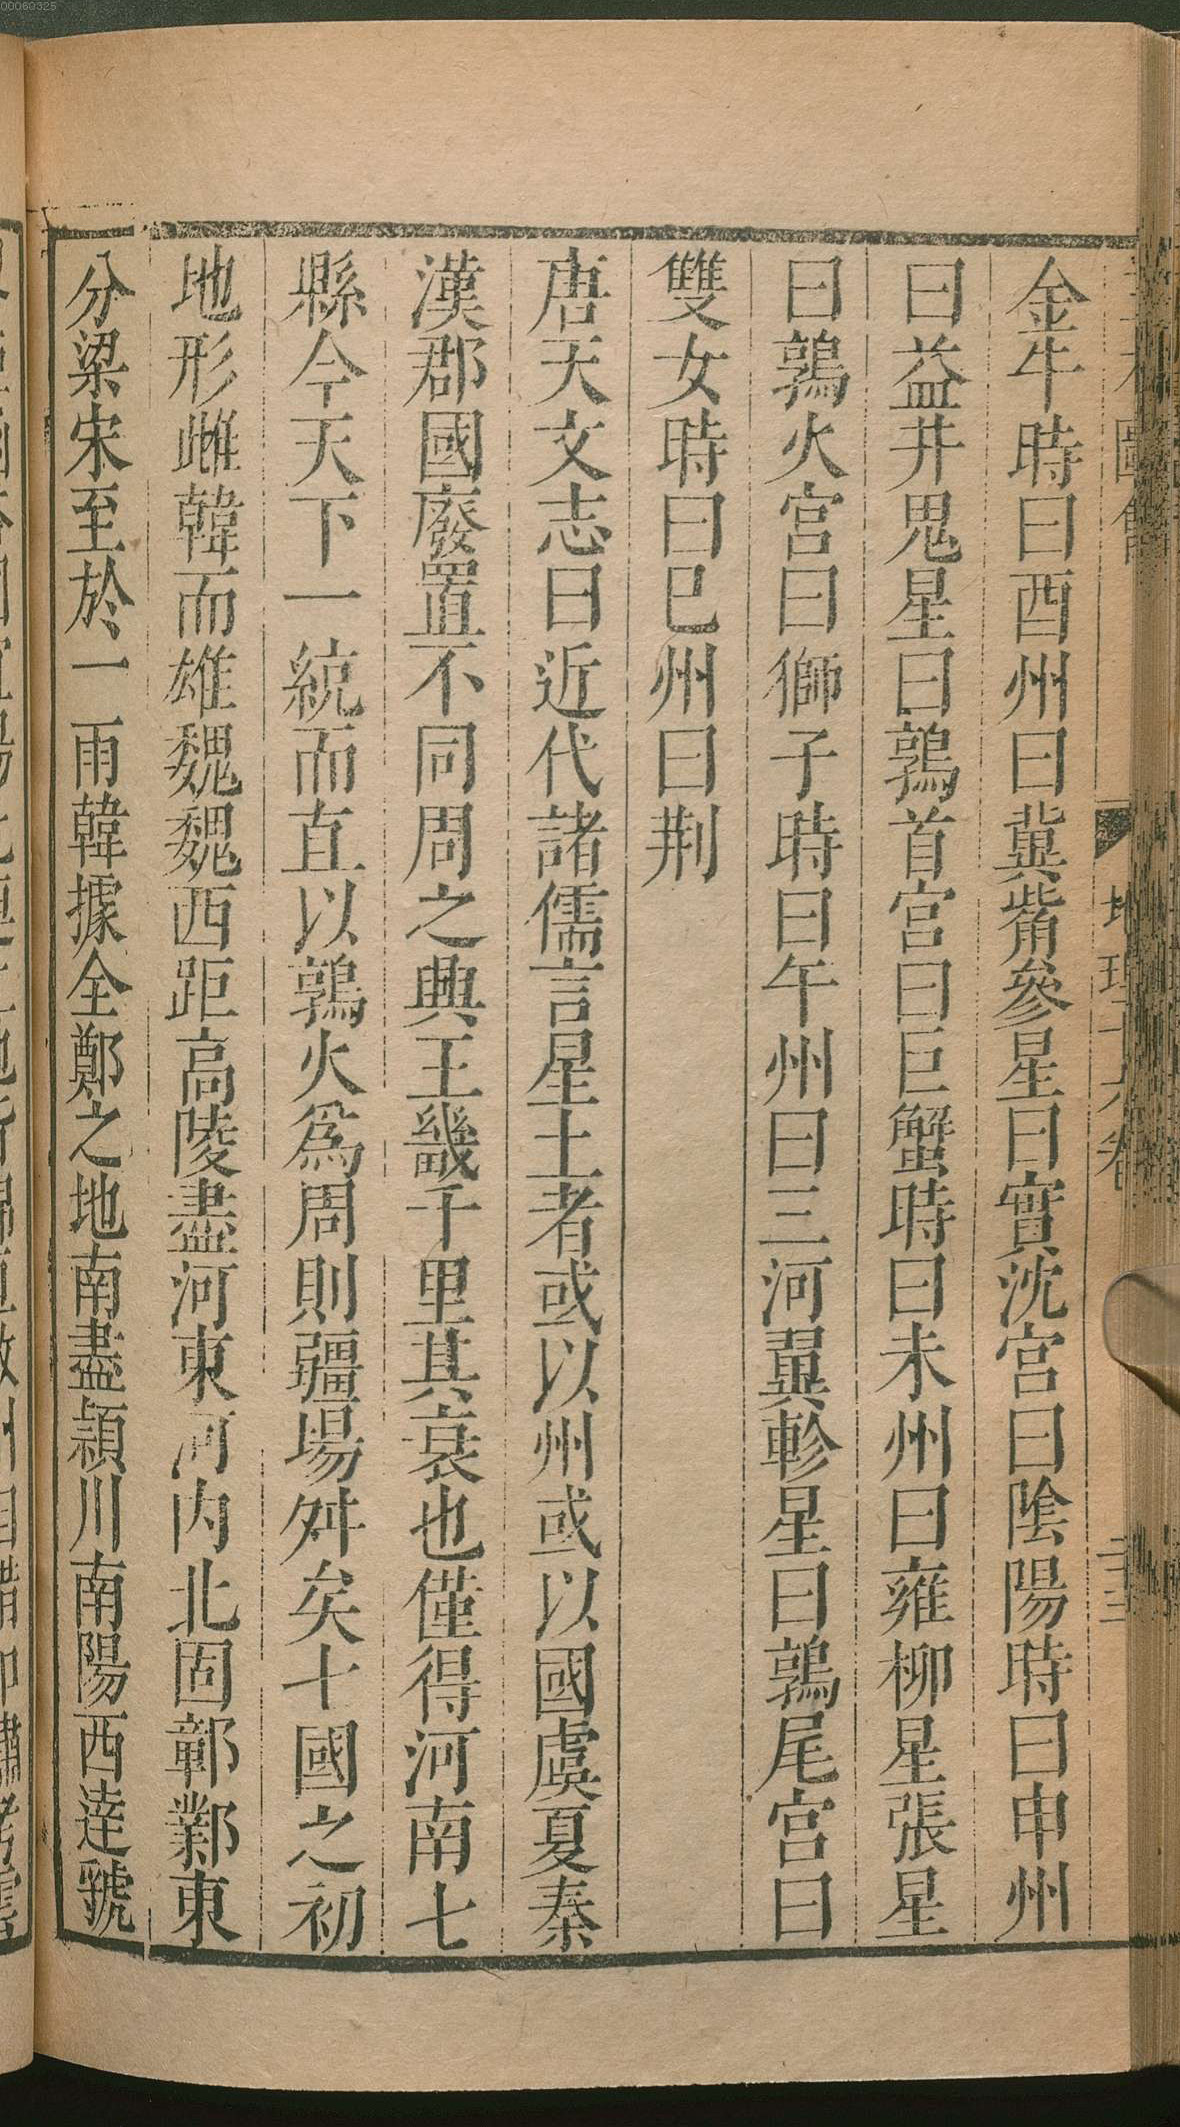 金牛時曰酉州曰冀觜參星曰實沈宮曰陰陽時曰申州
曰益井鬼星曰鶉首宮曰巨蟹時曰未州曰雍柳星張星
曰鶉火宮曰獅子時曰午州曰三河翼軫星曰鶉尾宮曰
雙女時曰巳州曰荆
唐天文志曰近代諸儒言星土者或以州或以國虞夏秦
漢郡國廢置不同周之興王畿千里其衰也僅得河南七
縣今天下一統而直以鶉火爲周則疆場舛矣十國之初
地形雌韓而雄魏魏西距高陵盡河東河内北固鄣鄴東
分梁宋至於一雨韓據全鄭之地南盡頴川南陽西達虢
00060325